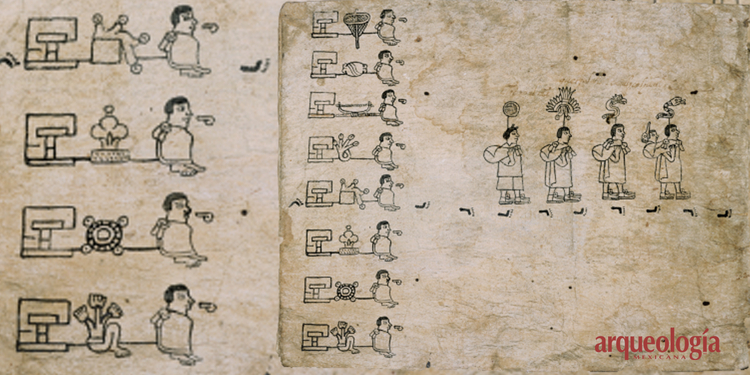 arqueología
MEXICANA